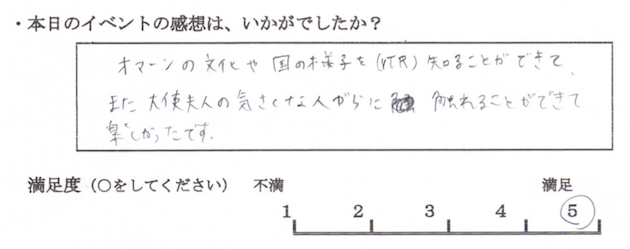 ・本日のイベントの感想は、いかがでしたか？
オマーンの文化や国の様子を(VTR)知ることができて、
また大使夫人の気さくな人がらに触れることができて
楽しかったです。
満足度（○をしてください） 不満 満足
1 2 3 4 5